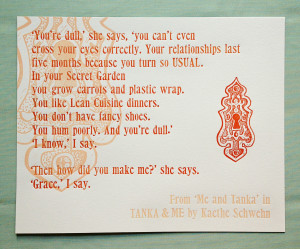 ‘You’re dull,’ she says, ‘you can’t even
cross your eyes correctly. Your relationships last
five months because you turn so USUAL.
In your Secret Garden
you grow carrots and plastic wrap.
You like Lean Cuisine dinners.
You don’t have fancy shoes.
You hum poorly. And you’re dull.’
‘I know,’ I say.
‘Then how did you make me?’ she says.
‘Grace,’ I say.
From ‘Me and Tanka’ in
TANKA & ME by Kaethe Schwehn